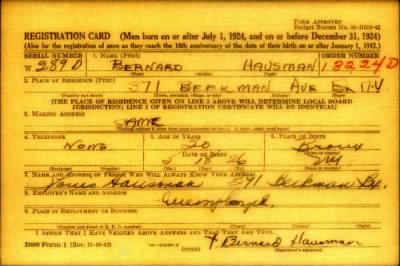 FORM APPROVED
REGISTRATION CARD (Men born on or after July 1, 1924, and on or before December 31, 1924)
(Also for the registration of men as they reach the 18th anniversary of the date of their birth on or after January 1, 1943.)
SERIAL NUMBER 1. NAME (Print) ORDER NUMBER
W 289 D BERNARD HAUSMAN 13224D
(First) (Middle) (Last)
2. PLACE OF RESIDENCE (Print)
371 BEEKMAN AVE BX N.Y.
(Number and street)
[THE PLACE OF RESIDENCE GIVEN ON LINE 2 ABOVE WILL DETERMINE LOCAL BOARD
JURISDICTION; LINE 2 OF REGISTRATION CERTIFICATE WILL BE IDENTICAL]
3. MAILING ADDRESS
SAME
4. TELEPHONE 5. AGE IN YEARS 6. PLACE OF BIRTH
NONE 20 Bronx
DATE OF BIRTH
2 18 26 NY
7. NAME AND ADDRESS OF PERSON WHO WILL ALWAYS KNOW YOUR ADDRESS
Louis Hausman 371 Beekman Bx.
8. EMPLOYER'S NAME AND ADDRESS
Unemployed
9. PLACE OF EMPLOYMENT OR BUSINESS
I AFFIRM THAT I HAVE VERIFIED ABOVE ANSWERS AND THAT THEY ARE TRUE.
DSS FORM 1 X Bernard Hausman